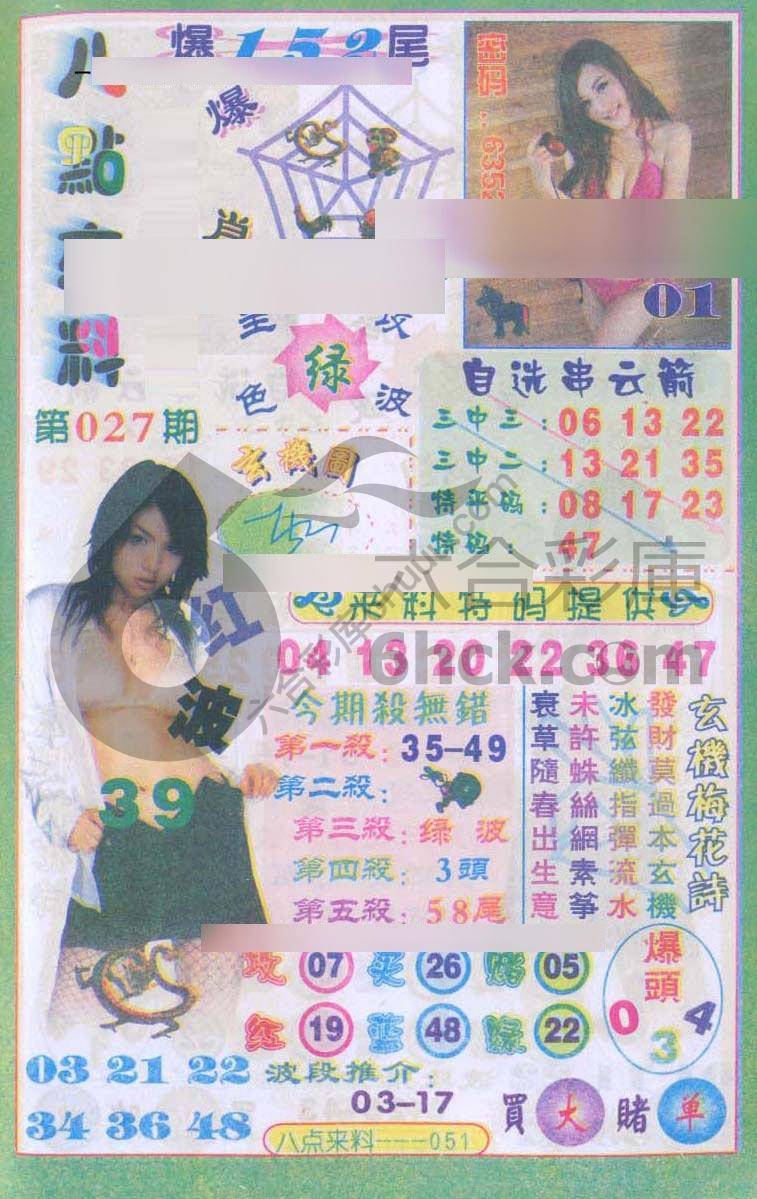 爆152尾
八點
料
爆
肖
密码：6352
01
绿
色
波
第027期
自选串云箭
三中三：06 13 22
三中二：13 21 35
特平码：08 17 23
特码：47
玄機圖
来料特码提供
04 13 20 22 36 47
红波
39
今期殺無錯
第一殺：35-49
第二殺：
第三殺：绿波
第四殺：3頭
第五殺：58尾
玄機梅花詩
發財莫過本玄機
冰弦纖指彈流水
未許蛛絲網素筝
衰草隨春出生意
攻 07 买 26 赌 05
红 19 蓝 48 绿 22
爆頭
0 3 4
03 21 22
34 36 48
波段推介：
03-17
買大賭单
八点来料---051
六合彩庫
6hck.com